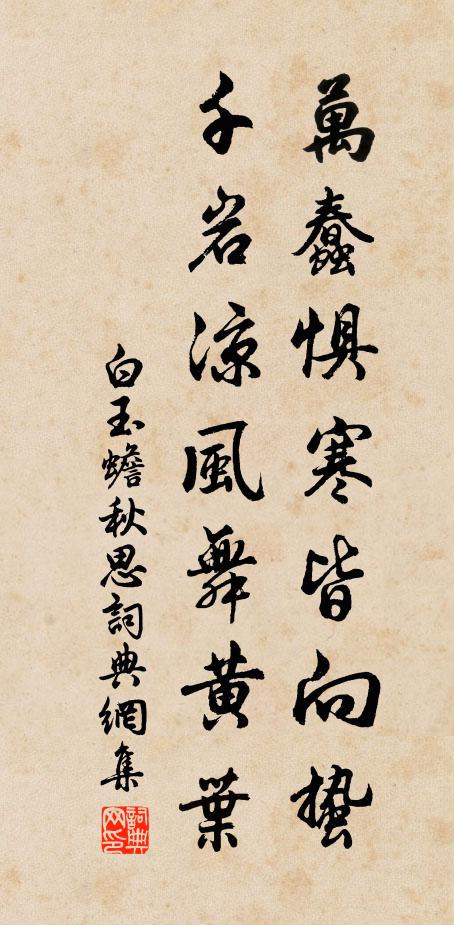 萬蠢惧寒皆向蟄
千岩凉風舞黄葉
白玉蟾秋思詞典網集
詞典网印